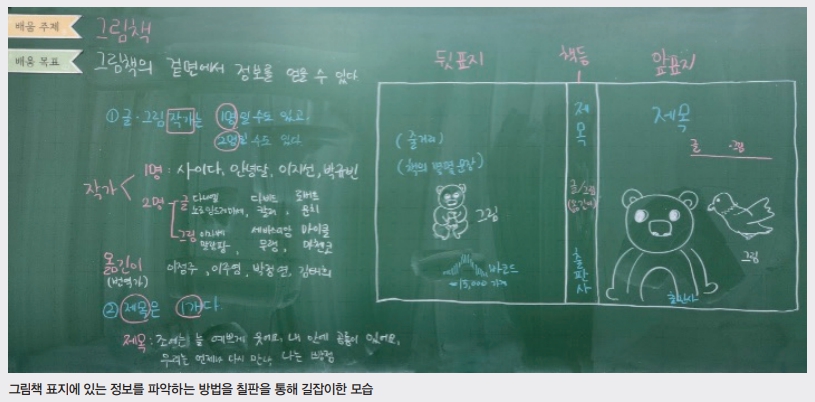 배움 주제
그림책
배움 목표
그림책의 겉면에서 정보를 얻을 수 있다
① 글·그림 작가는 1명일 수도 있고,
2명일 수도 있다
작가
1명 : 사이다, 안녕달, 이지선,
2명
글 다비드 로버트
칼리, 윤치
그림 세바스티앙 마이클
무랭,
옮긴이
(번역가)
이정주, 이주영, 박정연,
② 제목은 1개다.
제목 : 조애는 늘 예쁘게 웃어요, 내 안에 공룡이 있어요,
우리는 언젠가 다시 만나, 나는
뒷표지
(줄거리)
(책의 명문장)
그림
바코드
15,000 가격
책등
제목
글/그림
(옮긴이)
출판사
앞표지
제목
글 ·그림
그림
출판사
그림책 표지에 있는 정보를 파악하는 방법을 칠판을 통해 길잡이한 모습